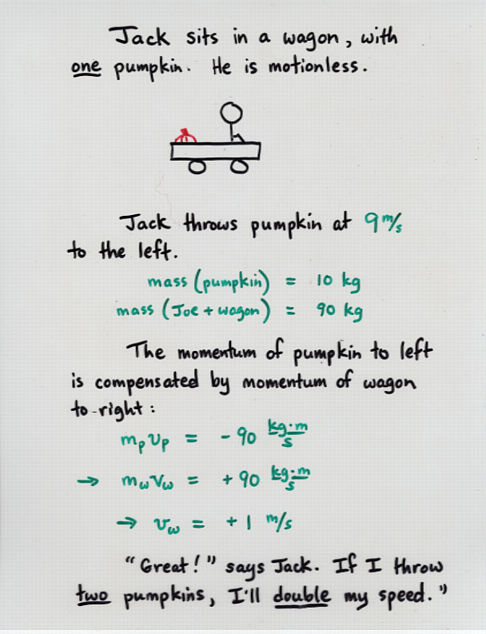 Jack sits in a wagon, with
one pumpkin. He is motionless.
Jack throws pumpkin at 9 m/s
to the left.
mass (pumpkin) = 10 kg
mass (Joe + wagon) = 90 kg
The momentum of pumpkin to left
is compensated by momentum of wagon
to right:
mₚvₚ = -90 kg·m/s
→ m_w v_w = +90 kg·m/s
→ v_w = +1 m/s
"Great!" says Jack. If I throw
two pumpkins, I'll double my speed."